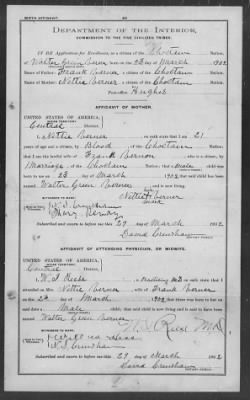 BIRTH AFFIDAVIT.
DEPARTMENT OF THE INTERIOR,
COMMISSION TO THE FIVE CIVILIZED TRIBES.
IN RE Application for Enrollment, as a citizen of the Choctaw Nation,
of Walter Green Berner born on the 23 day of March 1902
Name of Father: Frank Berner a citizen of the Choctaw Nation.
Name of Mother: Nettie Berner a citizen of the Choctaw Nation.
Hughes
AFFIDAVIT OF MOTHER.
UNITED STATES OF AMERICA,
INDIAN TERRITORY
Central District.
I, Nettie Berner, on oath state that I am 21
years of age and a citizen by Blood of the Choctaw Nation;
that I am the lawful wife of Frank Berner, who is a citizen, by
Marriage of the Choctaw Nation; that a male child was
born to me on 23 day of March 1902, that said child has been
named Walter Green Berner, and is now living.
Nettie Berner
WITNESSES TO MARK:
Subscribed and sworn to before me this 29 day of March 1902
David Crenshaw
AFFIDAVIT OF ATTENDING PHYSICIAN, OR MIDWIFE.
UNITED STATES OF AMERICA,
INDIAN TERRITORY
Central District.
I, a Practicing MD, on oath state that I
attended on Mrs. Nettie Berner, wife of Frank Berner
on the 23 day of March 1902, that there was born to her on
said date a Male child; that said child is now living and is said to have been
named Walter Green Berner
M.D.
WITNESSES TO MARK:
Subscribed and sworn to before me this 29 day of March 1902
David Crenshaw